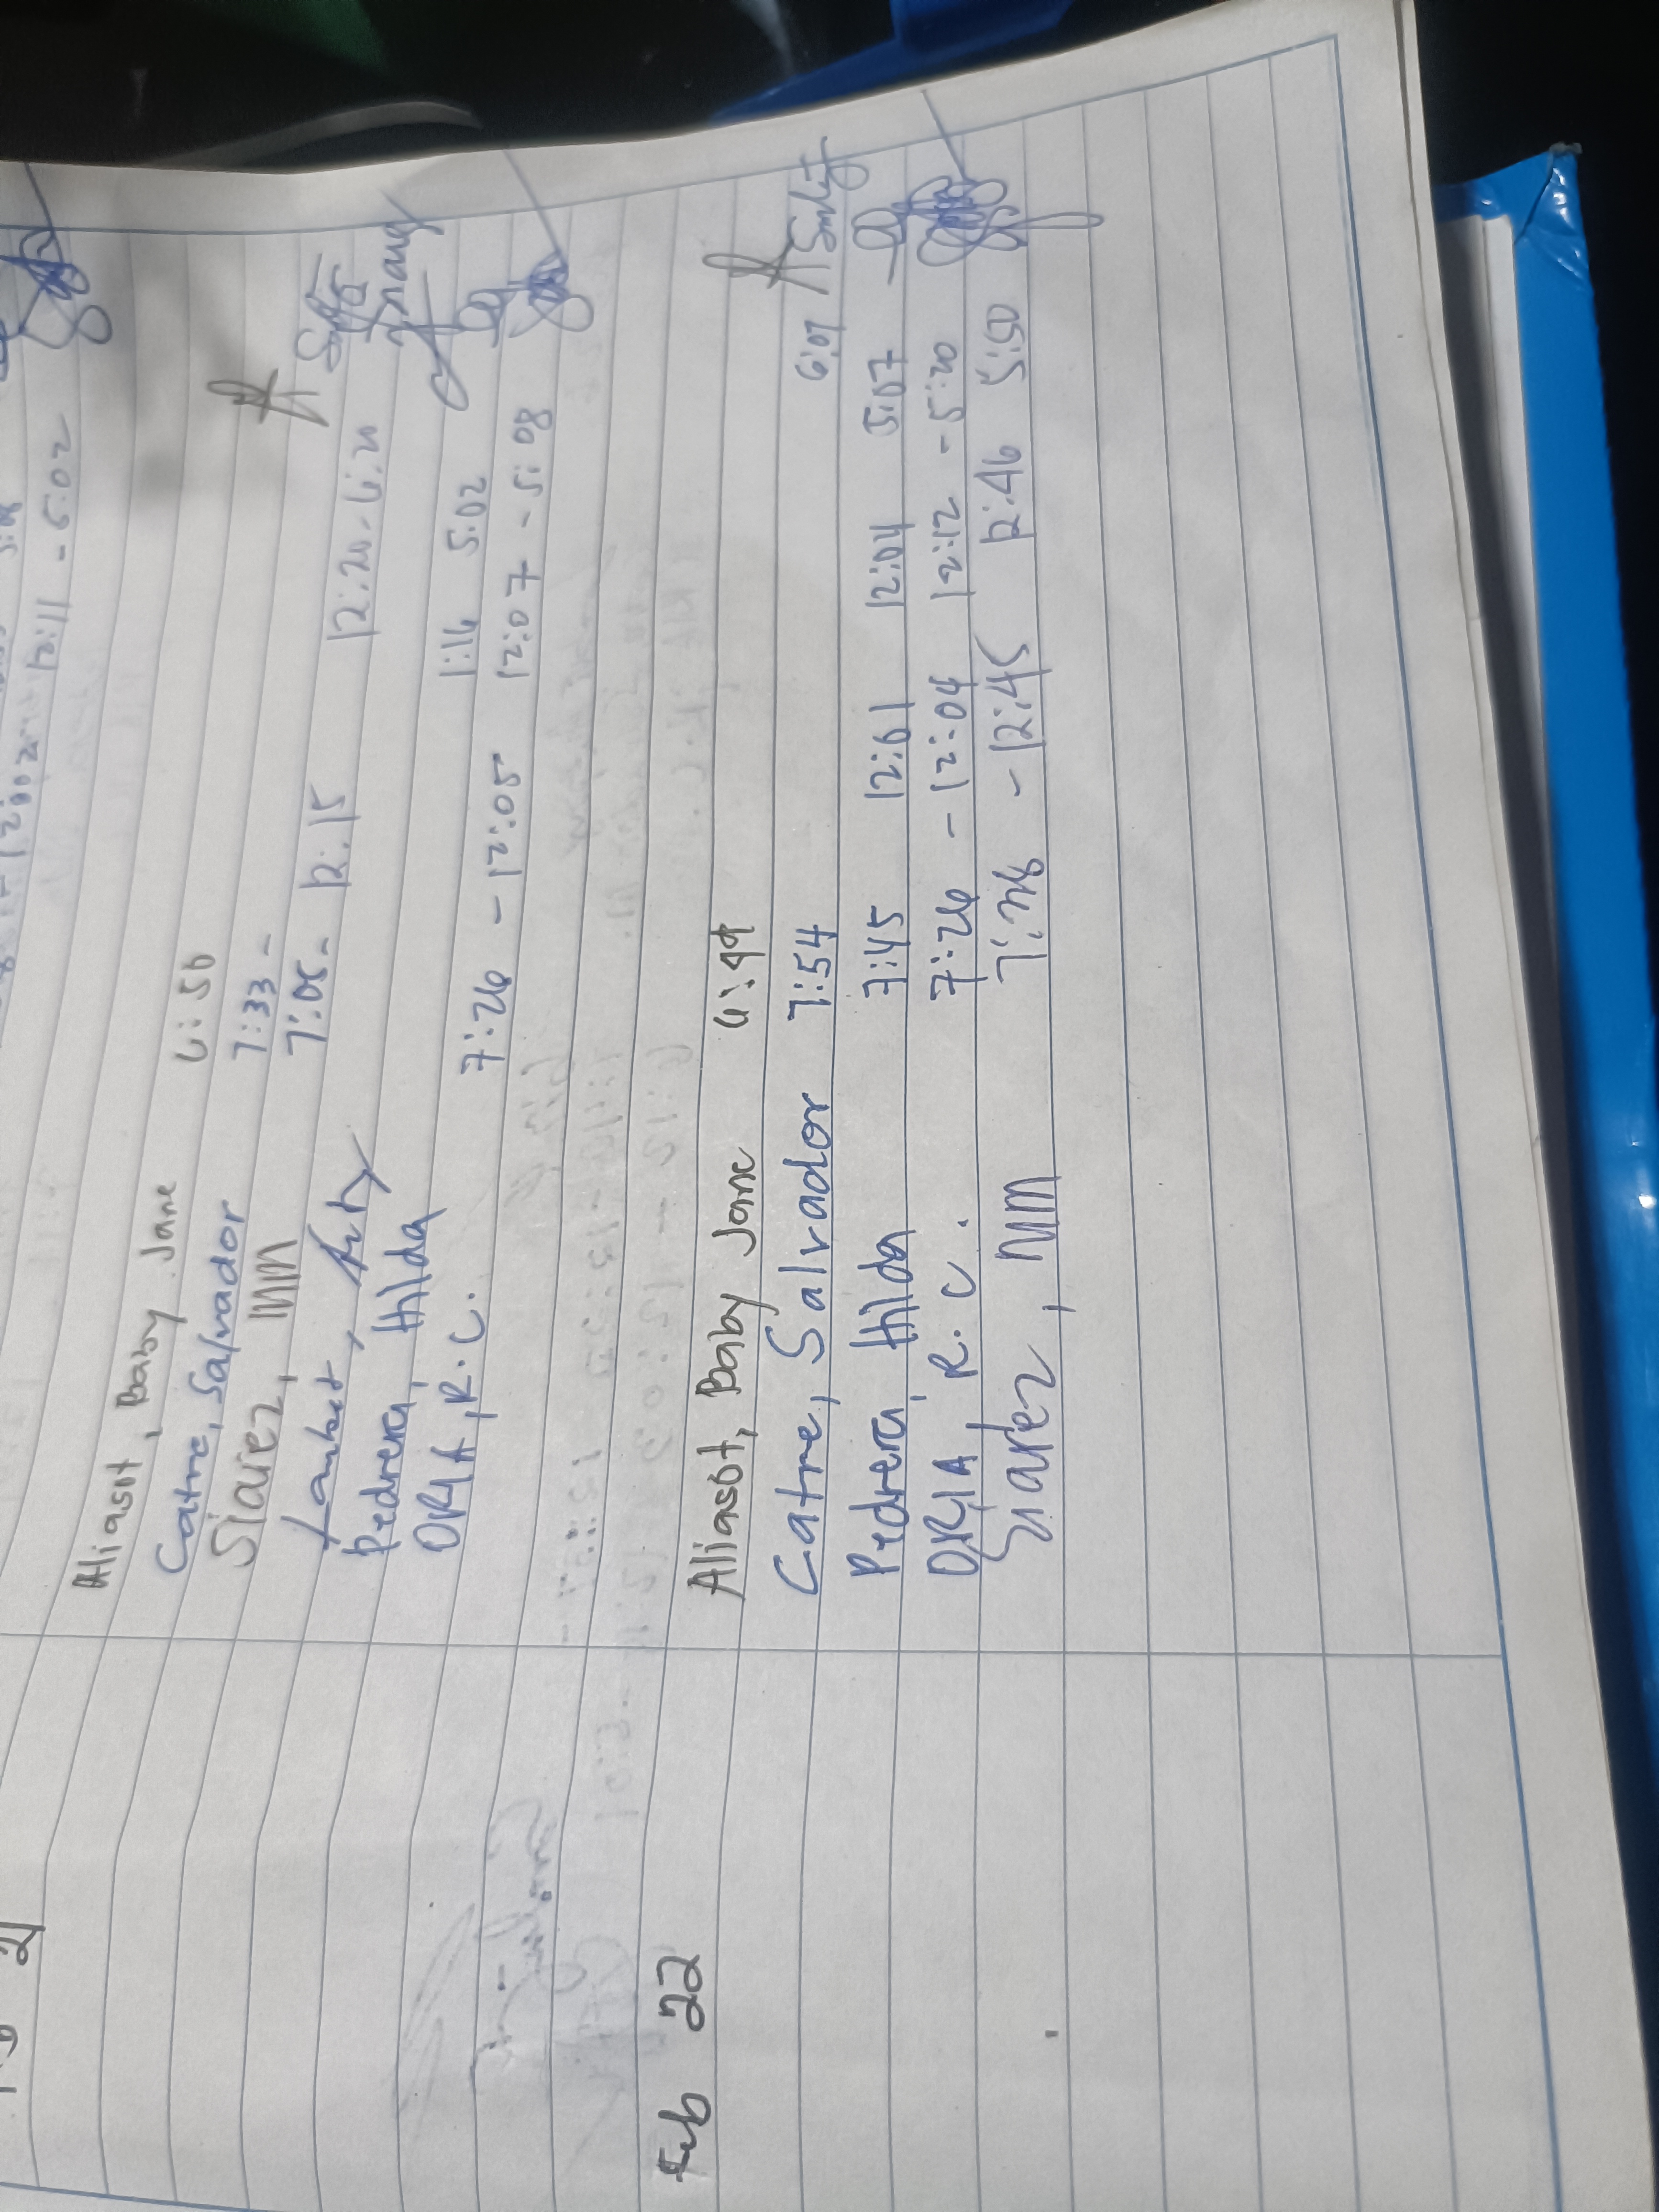 12:11 - 5:02
21
Aliasot, Baby Jane 6:50
Catre, Salvador 7:33 -
Siarez, MM 7:05 - 12:15 12:20 - 6:20
Pedrera, Hilda 1:16 5:02
ORIA, R.C. 7:26 - 12:05 12:07 - 5:08
Feb 22
Aliasot, Baby Jane 6:49
Catre, Salvador 7:54 6:07
Pedrera, Hilda 7:45 12:01 12:04 5:07
ORIA, R.C. 7:26 - 12:04 12:12 - 5:20
Siarez, MM 7:38 - 12:45 12:46 5:50